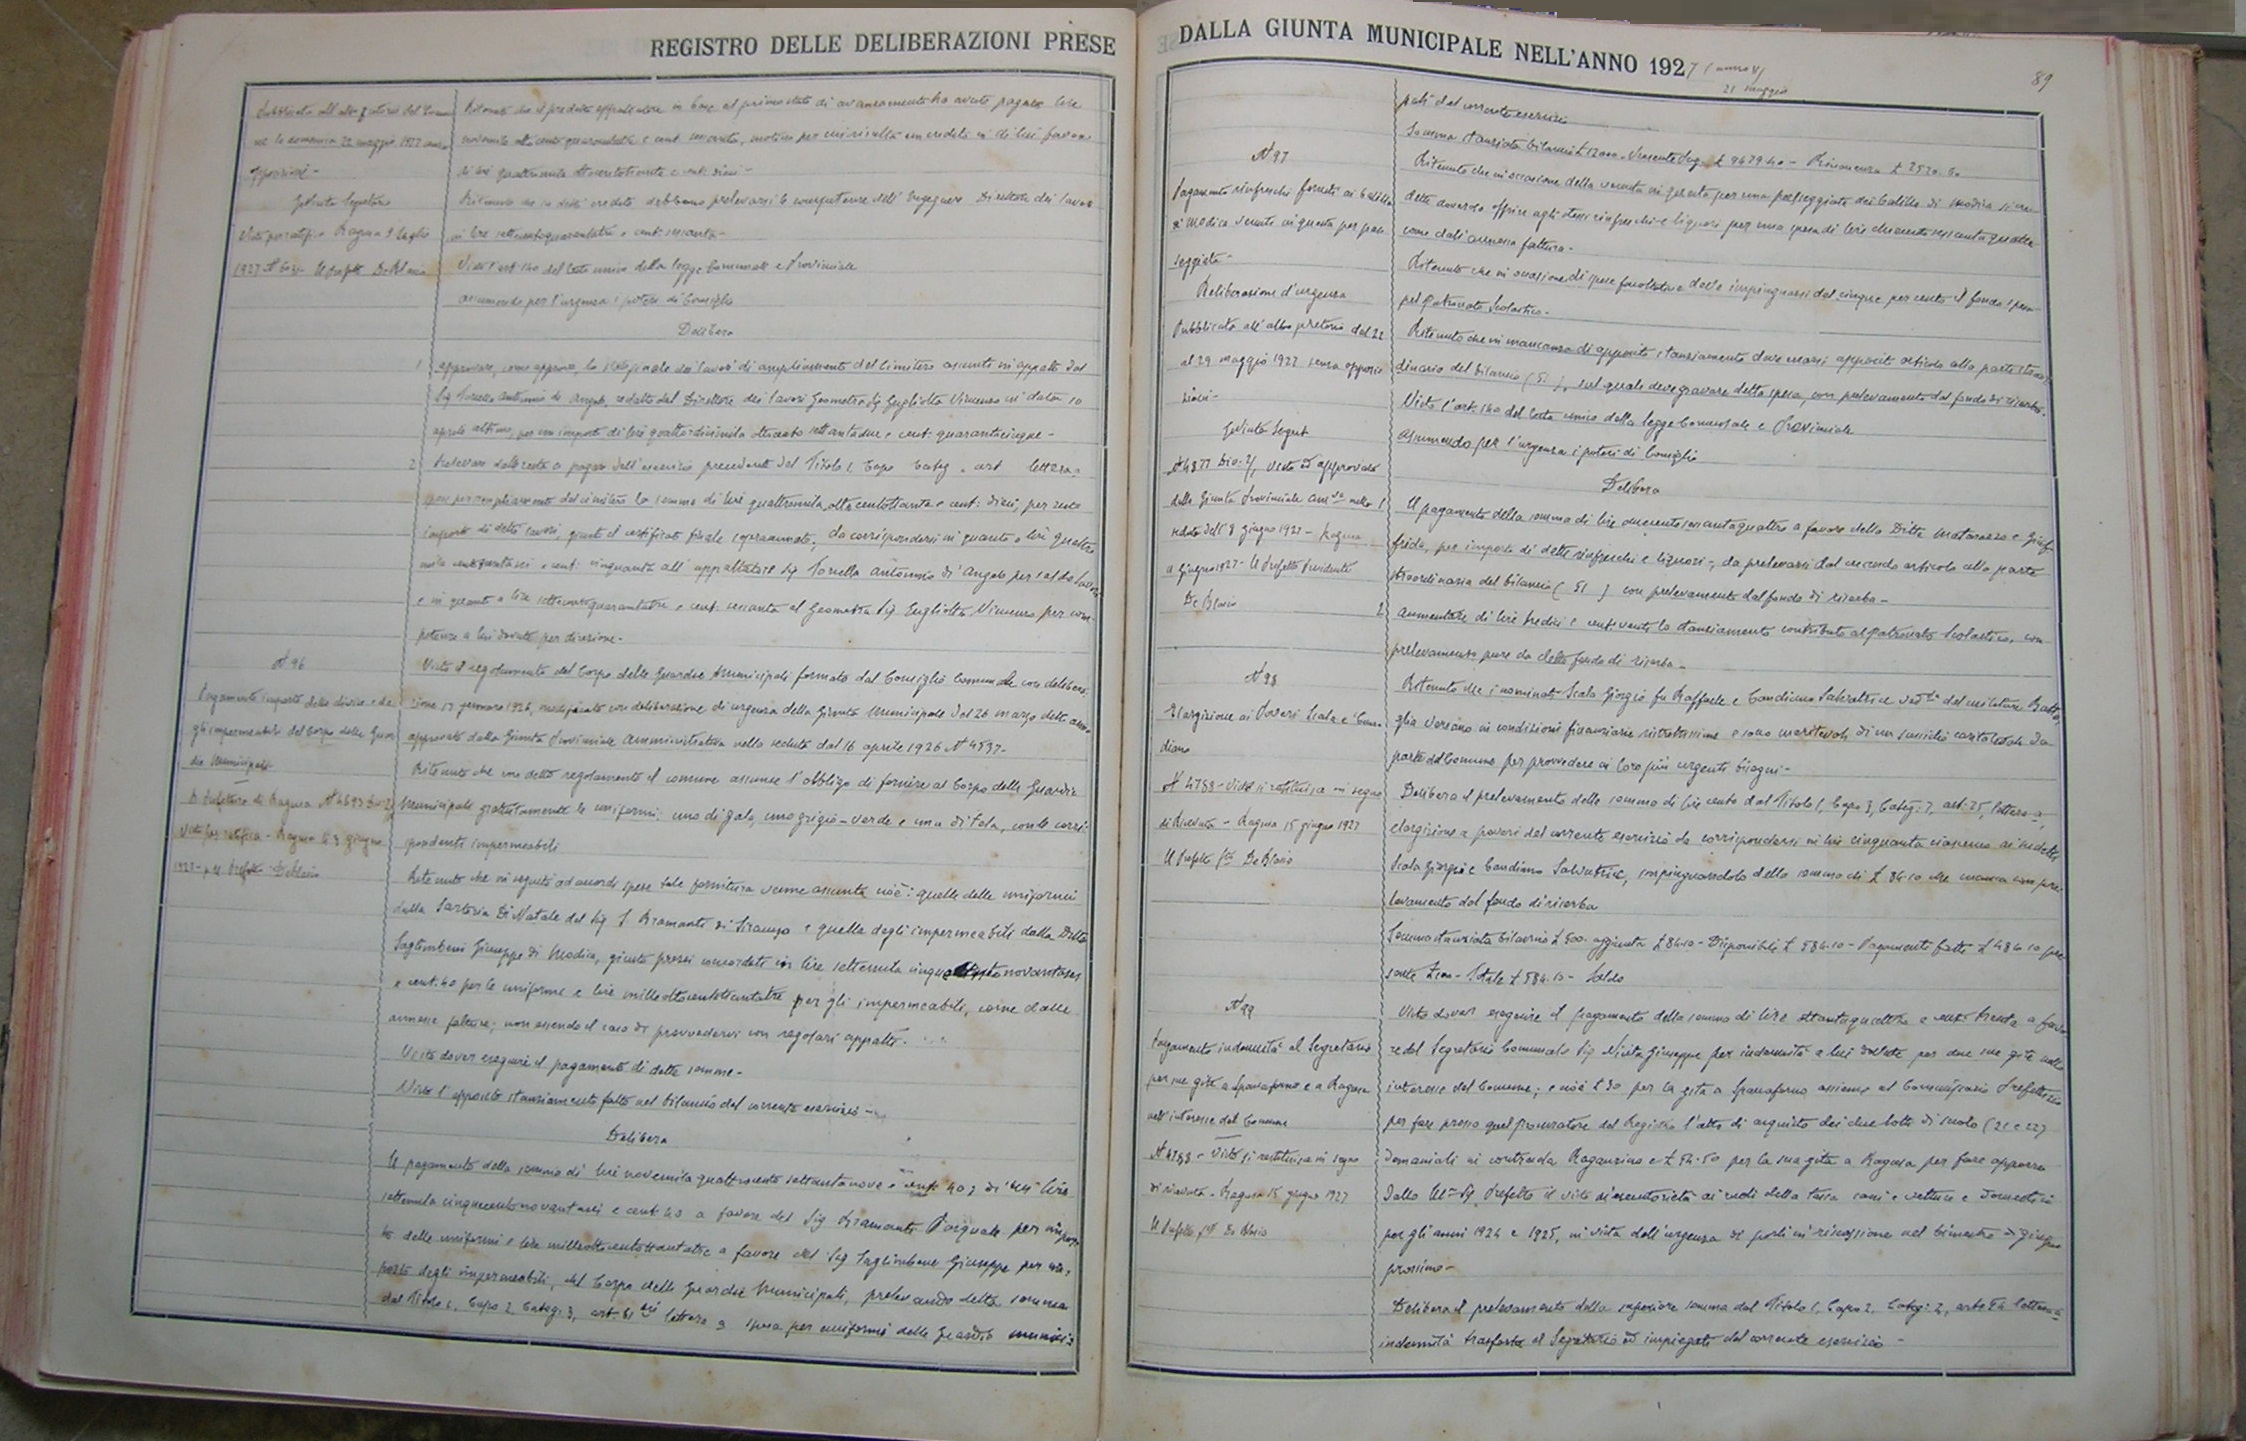 REGISTRO DELLE DELIBERAZIONI PRESE
Pubblicato all'albo pretorio del Comu
ne la domenica 22 maggio 1927 senza
opposizioni -
Il Segretario
Visto per ratifica Ragusa 9 Luglio
1927 Il Prefetto De Blasio
Ritenuto che il predetto appaltatore in base al primo stato di avanzamento ha avuto pagato lire
novemila ottocento quarantadue e cent. sessanta, motivo per cui risulta un credito in di lui favore
di lire quattromila ottocentottanta e cent. dieci -
Ritenuto che da detto credito debbonsi prelevarsi le competenze dell'Ingegnere Direttore dei lavori
in lire settecentoquarantatre e cent. sessanta -
Visto l'art. 140 del testo unico della legge Comunale e Provinciale
assumendo per l'urgenza i poteri di Consiglio
Delibera
1 approvare, come approva, lo stato finale dei lavori di ampliamento del Cimitero assunti in appalto dal
Sig Antonino di Angelo, redatto dal Direttore dei lavori Geometra Sig Gugliotta Vincenzo in data 10
aprile ultimo, per un importo di lire quattordicimila ottocento settantadue e cent. quarantacinque -
2 Prelevare dalle resta a pagare dell'esercizio precedente dal Titolo 1, Capo Categ. art lettera
spese per ampliamento del cimitero la somma di lire quattromila ottocentottanta e cent. dieci, per resto
importo di detti lavori, giusto il certificato finale soprannunciato, da corrispondersi in quanto a lire quattro
mila e cent. cinquanta all'appaltatore Sig Antonino di Angelo per saldo lavori
e in quanto a lire settecentoquarantatre e cent. sessanta al Geometra Sig Gugliotta Vincenzo per com-
petenze a lui dovute per direzione -
N 96
Pagamento importo delle divise e de
gli impermeabili del Corpo delle Guar
die Municipali
R Prefettura di Ragusa N 4893 Div 2
Visto per ratifica - Ragusa li 3 giugno
1927 - p il Prefetto De Blasio
Visto il regolamento del Corpo delle Guardie Municipali formato dal Consiglio Comunale con delibera-
zione 17 gennaio 1926, modificato con deliberazione di urgenza della Giunta Municipale del 26 marzo detto anno
approvato dalla Giunta Provinciale Amministrativa nella seduta del 16 aprile 1926 N 4537 -
Ritenuto che con detto regolamento il comune assunse l'obbligo di fornire al Corpo delle Guardie
Municipali gratuitamente le uniformi: una di gala, una grigio-verde e una di tela, con le corri-
spondenti impermeabili
Ritenuto che in seguito ad accordi spese tale fornitura venne assunta cioè: quella delle uniformi
dalla Sartoria Di Natale del Sig P. Bramante di Siracusa e quella degli impermeabili dalla Ditta
Saglimbene Giuseppe di Modica, giusto prezzi concordati in lire settemila cinquecentonovantasei
e cent. 40 per le uniforme e lire milleottocentottantatre per gli impermeabili, come dalle
annesse fatture; non essendo il caso di provvedervi con regolari appalti.
Visto dover eseguire il pagamento di dette somme -
Visto l'apposito stanziamento fatto nel bilancio del corrente esercizio -
Delibera
Il pagamento della somma di lire novemila quattrocento settantanove e cent. 40; di cui lire
settemila cinquecentonovantasei e cent. 40 a favore del Sig Bramante Pasquale per impor-
to delle uniformi e lire milleottocentottantatre a favore del Sig Saglimbene Giuseppe per im-
porto degli impermeabili, del Corpo delle Guardie Municipali, prelevando detta somma
dal Titolo 1, Capo 2, Categ: 3, art. 61 lettera g spesa per uniformi delle Guardie munici-
DALLA GIUNTA MUNICIPALE NELL'ANNO 1927 (anno V)
21 Maggio
89
pali del corrente esercizio
Somma stanziata bilancio £ 12000 - Presente Sug. £ 9479.40 - Rimanenza £ 2520.60
N 97
Pagamento rinfreschi forniti ai balilla
di Modica venuti in questa per pas
seggiata -
Deliberazione d'urgenza
Pubblicata all'albo pretorio dal 22
al 29 maggio 1927 senza opposi
zioni -
Il Segret
N 4877 Div: 2/ Visto ed approvato
dalla Giunta Provinciale Amm.va nella
seduta dell'8 giugno 1927 - Ragusa
Giugno 1927 - Il Prefetto Presidente
De Blasio
Ritenuto che in occasione della venuta in questa per una passeggiata dei balilla di Modica si cre
dette doveroso offrire agli stessi rinfreschi e liquori per una spesa di lire duecento sessanta quattro
come dall'annessa fattura -
Ritenuto che in occasione di spese facoltative deve impinguarsi del cinque per cento il fondo spesa
pel Patronato Scolastico -
Ritenuto che in mancanza di apposito stanziamento deve crearsi apposito articolo alla parte straor-
dinaria del bilancio (51), sul quale deve gravare detta spesa, con prelevamento dal fondo di riserba.
Visto l'art. 140 del testo unico della legge Comunale e Provinciale
Assumendo per l'urgenza i poteri di Consiglio
Delibera
1 Il pagamento della somma di lire duecento sessantaquattro a favore della Ditta Matarazzo e Giuf-
frida, per importo di detti rinfreschi e liquori -, da prelevarsi dal creando articolo alla parte
straordinaria del bilancio (51) con prelevamento dal fondo di riserba -
2 aumentare di lire tredici e cent. venti lo stanziamento contributo al Patronato Scolastico, con
prelevamento pure da detto fondo di riserba -
N 98
Elargizione ai Poveri Scala e Can-
diano
N 4788 - Visto si restituisce in segno
di ricevuta - Ragusa 15 giugno 1927
Il Prefetto f.to De Blasio
Ritenuto che i nominati Scala Giorgio fu Raffaele e Candiano Salvatrice ved.va del militare Batta
glia versano in condizioni finanziarie ristrettissime e sono meritevoli di un sussidio caritatevole da
parte del Comune per provvedere ai loro più urgenti bisogni -
Delibera il prelevamento della somma di lire cento dal Titolo 1, Capo 3, Categ: 7, art: 25, lettera a,
elargizione a poveri del corrente esercizio da corrispondersi in lire cinquanta ciascuno ai predetti
Scala Giorgio e Candiano Salvatrice, impinguandolo della somma di £ 84.10 che manca con pre-
levamento dal fondo di riserba
Somma stanziata bilancio £ 500. aggiunta £ 84.10 - Disponibili £ 584.10 - Pagamenti fatti £ 484.10 pre
sente £ 100 - Totale £ 584.10 - Saldo
N 99
Pagamento indennità al Segretario
per sue gite a Spaccaforno e a Ragusa
nell'interesse del Comune
N 4788 - Visto si restituisce in segno
di ricevuta - Ragusa 15 giugno 1927
Il Prefetto f.to De Blasio
Visto dover eseguire il pagamento della somma di lire ottantaquattro e cent. a favo
re del Segretario Comunale Sig Giuseppe per indennità a lui dovute per due sue gite nello
interesse del Comune; e cioè £ 30 per la gita a Spaccaforno assieme al Commissario Prefettizio
per fare presso quel procuratore del Registro l'atto di acquisto dei due lotti di suolo (21 e 22)
Demaniali in contrada Raganzino e £ 54.50 per la sua gita a Ragusa per fare apporre
dallo Ill.mo Sig Prefetto il visto di esecutorietà ai ruoli della tassa cani e vetture e Domestici
per gli anni 1924 e 1925, in vista dell'urgenza di porli in riscossione nel bimestre di giugno
prossimo -
Delibera il prelevamento della superiore somma dal Titolo 1, Capo 2, Categ: 2, art. lettera a
indennità trasferte al Segretario ed impiegati del corrente esercizio -